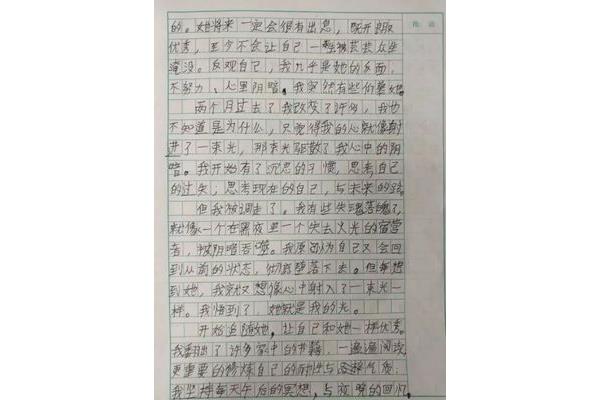 的。她将来一定会很有出息，既开朗
优秀，至少不会让自己一生被芸芸众生
淹没。反观自己，我几乎是她的反面，
不努力、心里阴暗。我突然有些仰慕她。
两个月过去了我改变了许多，我也
不知道是为什么，只觉得我的心就像射
进了一束光，那束光驱散了我心中的阴
暗。我开始有了沉思的习惯，思考自己
的过失；思考现在的自己，与未来的路。
但我被调走了。我有些失魂落魄了，
就像一个在黑夜里一个失去火光的宿营
者，被阴暗吞噬。我原以为自己又会回
到从前的状态，彻底堕落下去。但每想
到她，我就又想像心中射入了一束光一
样。我悟到了，她就是我的光。
开始追随她，让自己和她一样优秀。
我翻出了许多家中的书籍，一遍遍阅读，
更重要的修炼自己的耐性与思想气质
我坚持每天午后的冥想，与夜晚的回忆，